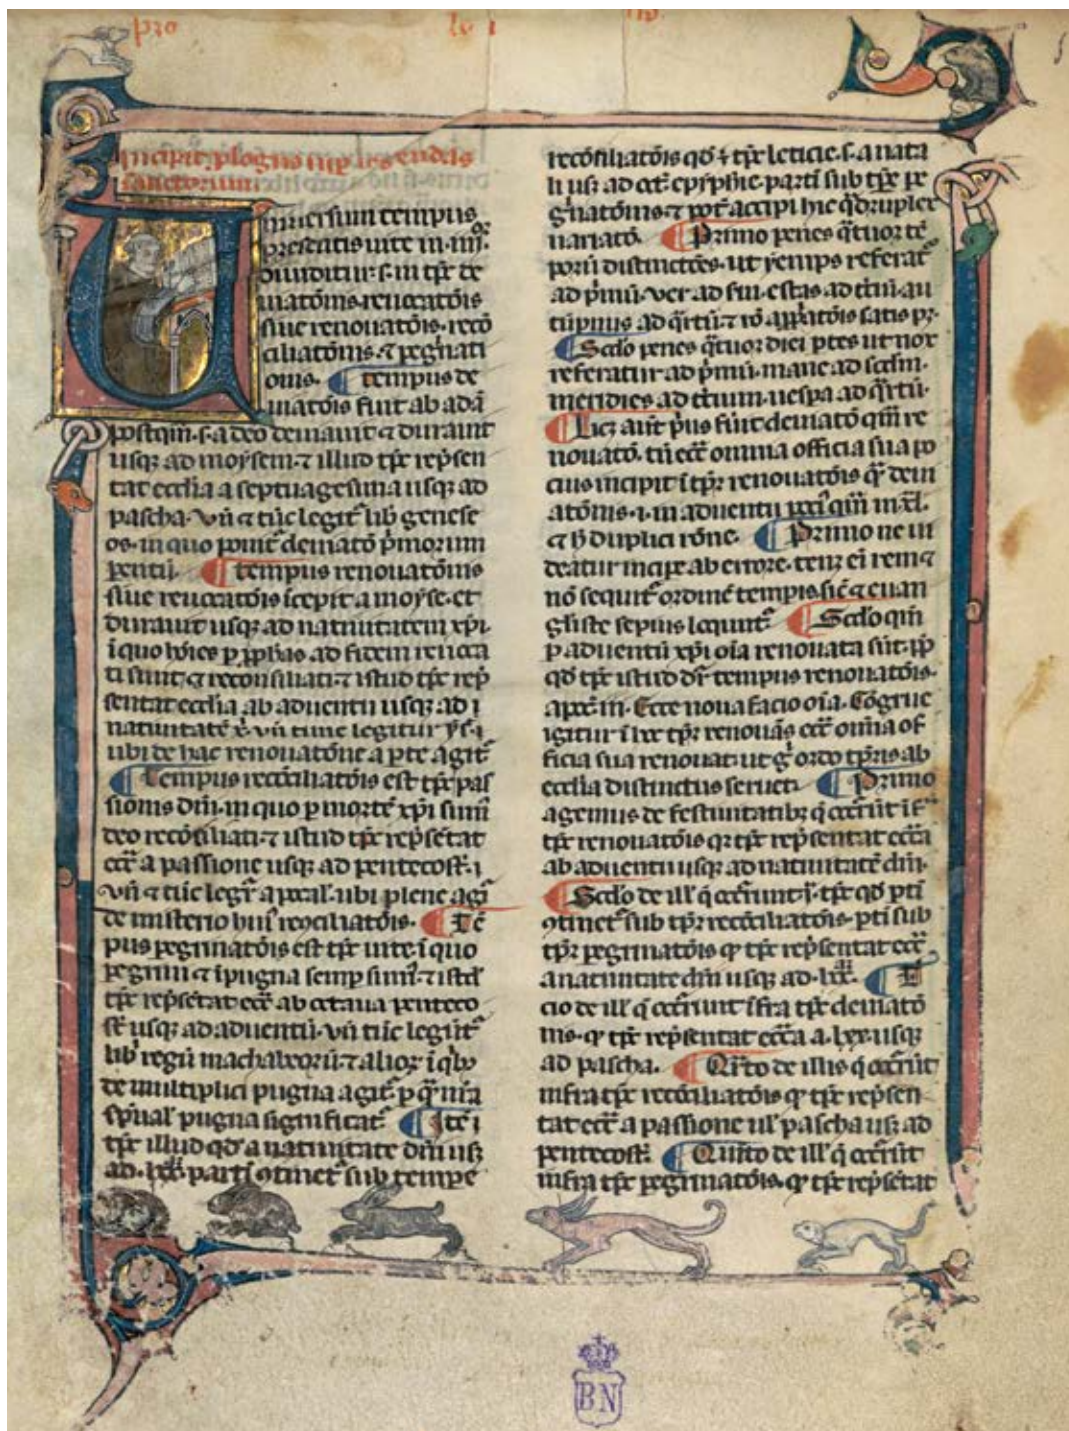 pro
Incipit plogus sup legendas
sanctorum
Uniuersum tempus
presentis uite in .iiij.or
diuiditur .s. in tp̄r de
uiatōnis. reuocatōnis
siue renouatōis. recō
ciliatōnis. ⁊ pegͥnati
onis. ¶ tempus de
uiatōis fuit ab adā
postqm̄ .s. a deo deuiauit ⁊ durauit
usqꝫ ad moysem. ⁊ illud tp̄r rep̄sen
tat ecclīa a septuagesima usqꝫ ad
pascha. vn̄ ⁊ tūc legit᷑ lib̾ genese
os. in quo ponit᷑ deuiatō pͥmorum
pentū. ¶ tempus renouatōnis
siue reuocatōis īcepit a moyse. et
durauit usqꝫ ad natiuitatem xp̄i.
ī quo hōies ꝑ ꝓphͣs ad fidem reuoca
ti sunt. ⁊ reconsiliati. ⁊ istud tp̄r rep̄
sentat ecclīa ab aduentu usqꝫ ad
natiuitatē x̄. vn̄ tunc legitur ys.
ubi de hac renouatōne aꝑte agit᷑
¶ Tempus recōciliatōis est tp̄r pas
sionis dn̄i. in quo ꝑ mortē xp̄i sum̄
deo recōsiliati. ⁊ istud tp̄r rep̄sētat
ecc̄ a passione usqꝫ ad pentecost̄.
vn̄ ⁊ tūc legit᷑ apocal̄. ubi plene agit᷑
de misterio hui᷒ reciliatōis. ¶ Tē
pus pegrinatōis est tp̄r uite. ī quo
pegrini ⁊ ī pugna semꝑ sum᷒. ⁊ istud
tp̄r rep̄sētat ecc̄ ab octaua penteco
st̄ usqꝫ ad aduentū. vn̄ tūc legūt᷑
lib̾ regū machabeorū. ⁊ alioꝝ ī qͥbꝰ
de multiplici pugna agit᷑ ꝑ qͣ nr̄a
sp̄ual̾ pugna significat᷑ ¶ Itē
tp̄r illud qd̾ a natiuitate dn̄i usqꝫ
ad .lxx. partī ↄtinet᷑ sub tempe
recōsiliatōis qd̾ ē tp̄r leticie .s. a nata
li usqꝫ ad oct̄. epyphīe. partī sub tp̄r pe
gͥnatōnis. ⁊ pōt accipi hec qͣdruplex
uariatō. ¶ Primo penes qͣtuor tē
porū distinctōes. ut yemps referat᷑
ad pͥmū. ver ad sm̄. estas ad t̄ciū. au
tūpnus ad qͣrtū. ⁊ rō appͣatōis satis pꝫ.
¶ Sc̄do penes qͣtuor diei ptes ut nox
referatur ad pͥmū. mane ad scdm̄.
meridies ad t̄cium. uespa ad qͣrtū.
¶ Licꝫ aut̄ pͥus fuit deuiatō qͣm re
nouatō. tn̄ ecc̄ omnia officia sua po
cius incipit ī tp̄r renouatōis qͣ deui
atōnis .i. in aduentu pocͥ qͣm in xl.
⁊ h̾ duplici rōne. ¶ Primo ne ui
deatur incipe ab errore. tenꝫ ei̾ rem ⁊
nō sequit᷑ ordinē tempis. sic̄ ⁊ euan
gliste sepius loquūt᷑ ¶ Sc̄do qͣm
ꝑ aduentū xp̄i oīa renouata sūt. ꝓp
qd̾ tp̄r istud dr̄ tempus renouatōis.
apoc̄. in. Ecce noua facio oīa. Cōgrue
igitur ī hoc tp̄r renouās ecc̄ omīa of
ficia sua renouat. ut gͦ ordo tpr̄is ab
ecclīa distinctus seruet᷑ ¶ Primo
agemus de festiuitatibꝫ q̄ occurrūt īfͣ
tp̄r renouatōis qͣ tp̄r rep̄sentat ecc̄a
ab aduentu usqꝫ ad natiuitatē dn̄i.
¶ Sc̄do de ill̾ q̄ occurrunt ī tp̄r qd̾ ptī
ↄtinet᷑ sub tp̄r recōciliatōis. ptī sub
tp̄r pegrinatōis qͣ tp̄r rep̄sentat ecc̄
a natiuitate dn̄i usqꝫ ad .lxx. ¶ T̄
cio de ill̾ q̄ occurrunt īfra tp̄r deuiatō
nis. qͣ tp̄r rep̄sentat ecc̄a a .lxx. usqꝫ
ad pascha. ¶ Qͣrto de illis q̄ occurrūt
infra tp̄r recōciliatōis qͣ tp̄r rep̄sen
tat ecc̄ a passione ul̾ pascha usqꝫ ad
pentecost̄. ¶ Quīto de ill̾ q̄ occurrūt
infra tp̄r pegrinatōis. qͣ tp̄r rep̄sētat
BN